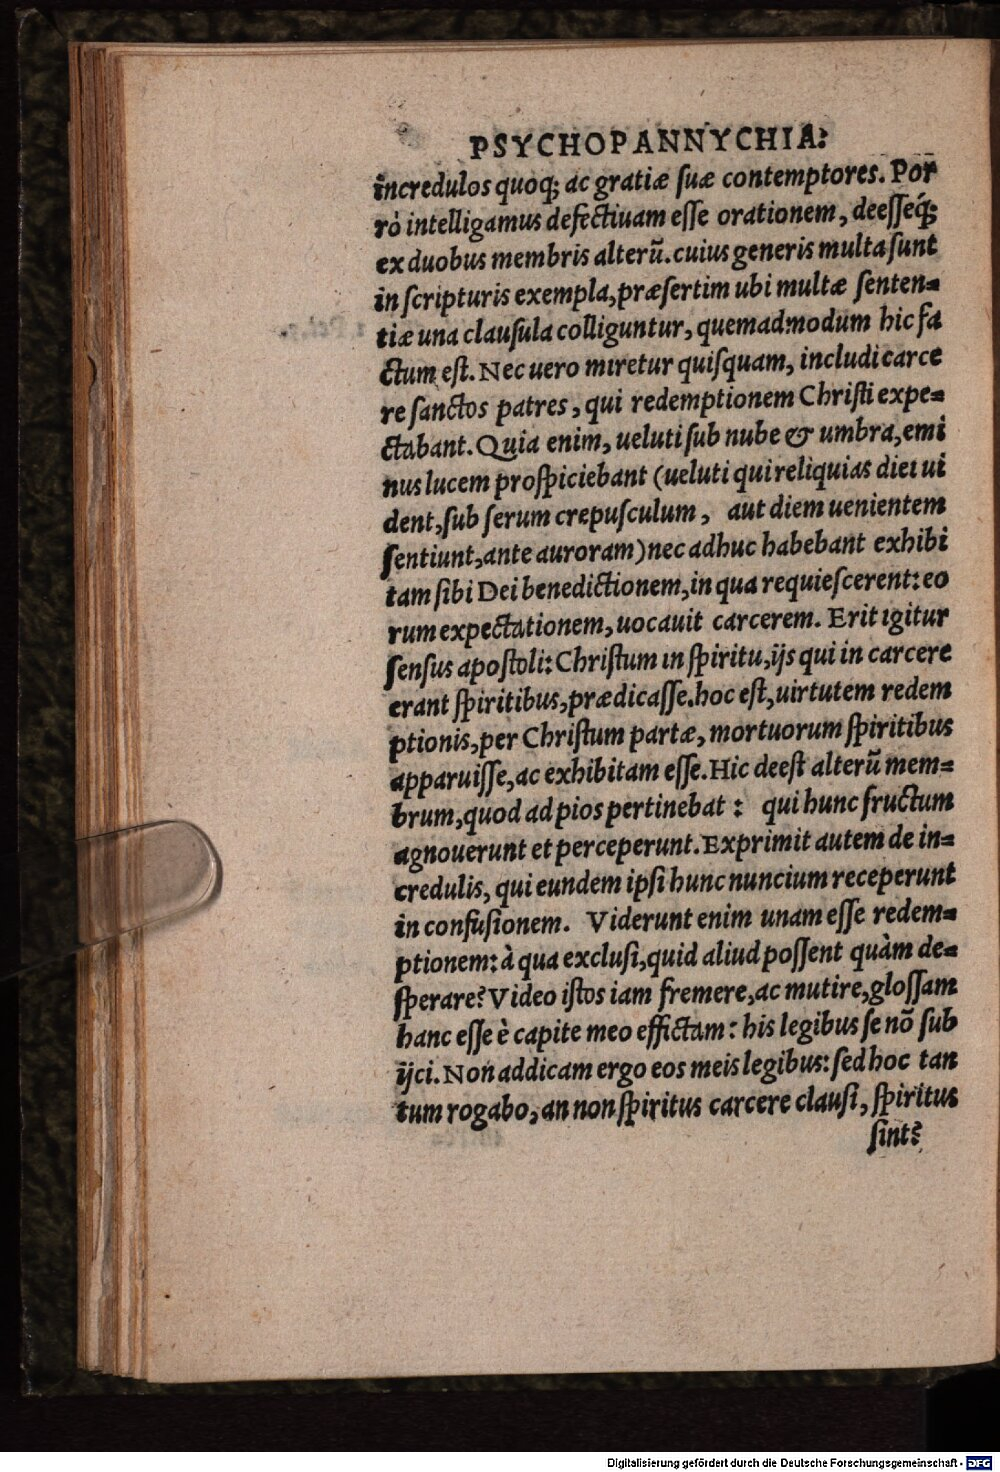 PSYCHOPANNYCHIA:
incredulos quoq; ac gratiæ ſuæ contemptores. Por
rò intelligamus defectiuam eſſe orationem, deeſſeq́;
ex duobus membris alterũ. cuius generis multa ſunt
in ſcripturis exempla, præſertim ubi multæ ſenten-
tiæ una clauſula colliguntur, quemadmodum hic fa
ctum eſt. Nec uero miretur quiſquam, includi carce
re ſanctos patres, qui redemptionem Chriſti expe-
ctabant. Quia enim, ueluti ſub nube & umbra, emi
nus lucem proſpiciebant (ueluti qui reliquias diei ui
dent, ſub ſerum crepuſculum, aut diem uenientem
ſentiunt, ante auroram) nec adhuc habebant exhibi
tam ſibi Dei benedictionem, in qua requieſcerent: eo
rum expectationem, uocauit carcerem. Erit igitur
ſenſus apoſtoli: Chriſtum in ſpiritu, ijs qui in carcere
erant ſpiritibus, prædicaſſe. hoc eſt, uirtutem redem
ptionis, per Chriſtum partæ, mortuorum ſpiritibus
apparuiſſe, ac exhibitam eſſe. Hic deeſt alterũ mem-
brum, quod ad pios pertinebat: qui hunc fructum
agnouerunt et perceperunt. Exprimit autem de in-
credulis, qui eundem ipſi hunc nuncium receperunt
in confuſionem. Viderunt enim unam eſſe redem-
ptionem: à qua excluſi, quid aliud poſſent quàm de-
ſperare? Video iſtos iam fremere, ac mutire, gloſſam
hanc eſſe è capite meo effictam: his legibus ſe nõ ſub
ijci. Non addicam ergo eos meis legibus: ſed hoc tan
tum rogabo, an non ſpiritus carcere clauſi, ſpiritus
ſint?
Digitalisierung gefördert durch die Deutsche Forschungsgemeinschaft - DFG